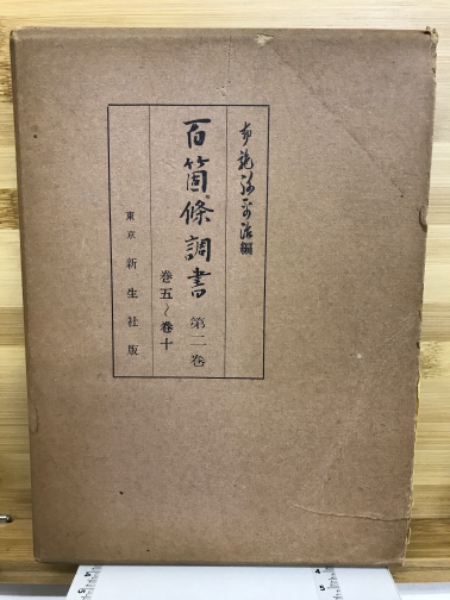 布施弥平治編
百箇條調書 第二卷
卷五〜卷十
東京 新生社版